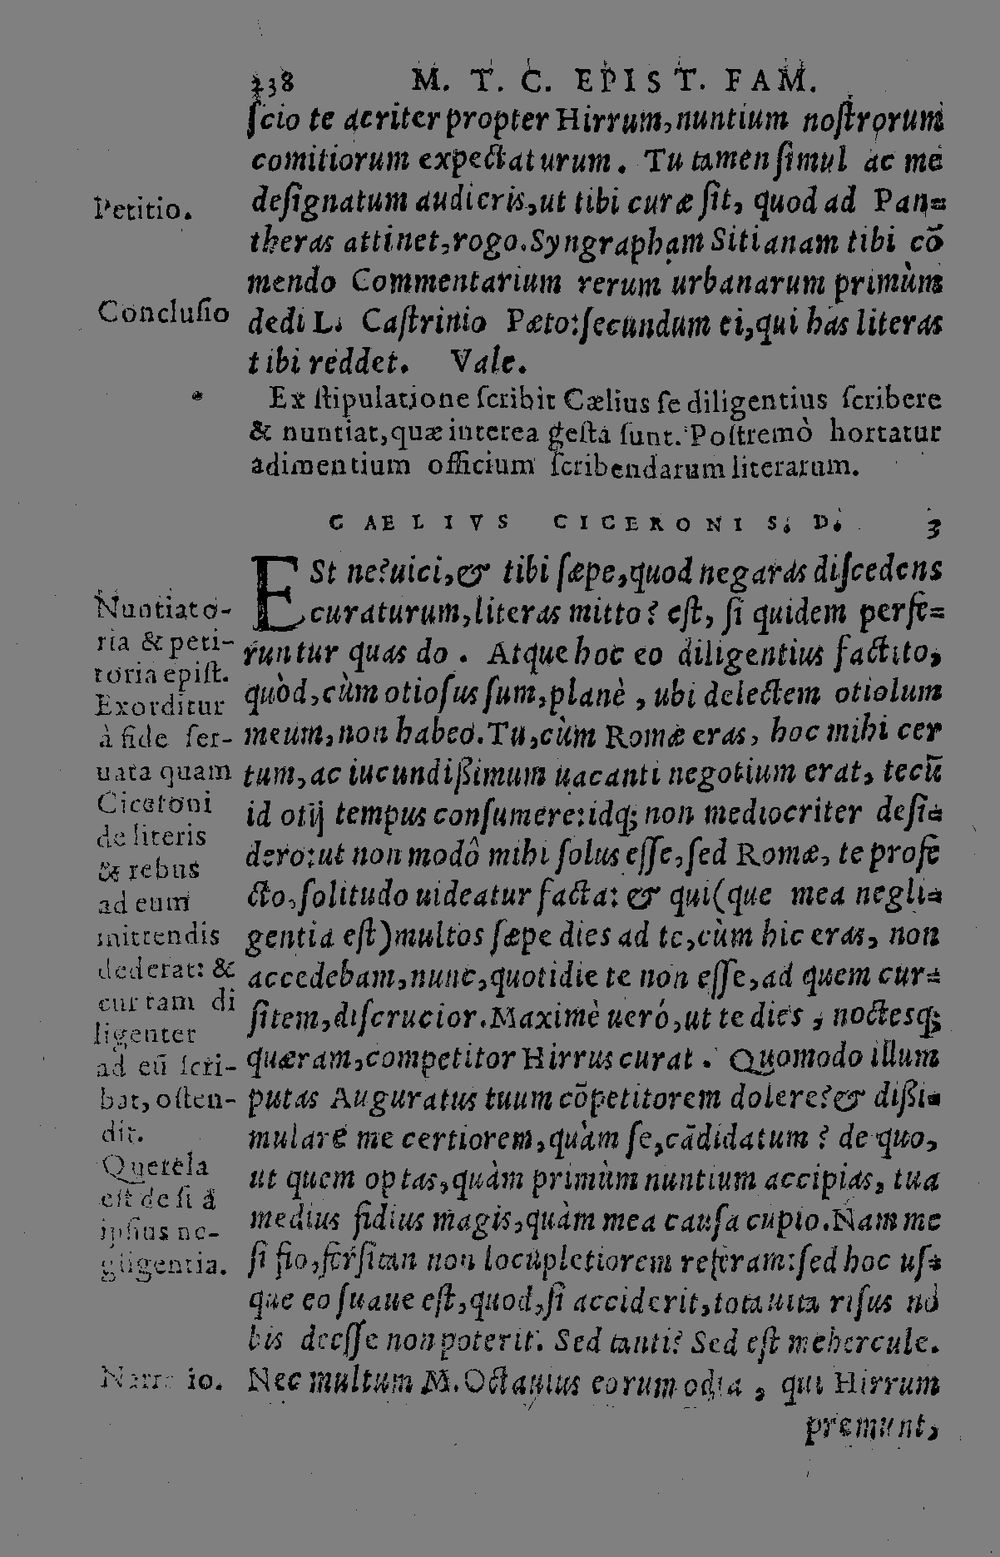 238 M. T. C. EPIST. FAM.
ſcio te acriter propter Hirrum, nuntium noſtrorum
comitiorum expectaturum. Tu tamen ſimul ac me
deſignatum audieris, ut tibi curæ ſit, quod ad Pan=
theras attinet, rogo. Syngrapham Sitianam tibi cō
mendo Commentarium rerum urbanarum primùm
dedi L. Caſtrinio Pæto: ſecundum ei, qui has literas
tibi reddet. Vale.
Petitio.
Concluſio
Ex ſtipulatione ſcribit Cælius ſe diligentius ſcribere
& nuntiat, quæ interea geſta ſunt. Poſtremò hortatur
adimentium officium ſcribendarum literarum.
CAELIVS CICERONI S. D. 3
ESt ne? uici, & tibi ſæpe, quod negaras diſcedens
curaturum, literas mitto? eſt, ſi quidem perfe=
runtur quas do. Atque hoc eo diligentius factito,
quòd, cùm otioſus ſum, planè, ubi delectem otiolum
meum, non habeo. Tu, cùm Romæ eras, hoc mihi cer
tum, ac iucundißimum uacanti negotium erat, tecū
id otij tempus conſumere: idq; non mediocriter deſi=
dero: ut non modô mihi ſolus eſſe, ſed Romæ, te profe
cto, ſolitudo uideatur facta: & qui (que mea negli=
gentia eſt) multos ſæpe dies ad te, cùm hic eras, non
accedebam, nunc, quotidie te non eſſe, ad quem cur=
ſitem, diſcrucior. Maximè ueró, ut te dies, noctesq;
quæram, competitor Hirrus curat. Quomodo illum
putas Auguratus tuum cōpetitorem dolere? & dißi=
mulare me certiorem, quàm ſe, cādidatum? de quo,
ut quem optas, quàm primùm nuntium accipias, tua
medius fidius magis, quàm mea cauſa cupio. Nam me
ſi fio, forſitan non locupletiorem referam: ſed hoc uſ=
que eo ſuaue eſt, quod, ſi acciderit, tota uita riſus no
bis deeſſe non poterit. Sed tanti? Sed eſt mehercule.
Nec multum M. Octauius eorum odia, qui Hirrum
premunt,
Nuntiato-
ria & peti-
toria epiſt.
Exorditur
à fide ſer-
uata quam
Ciceroni
de literis
& rebus
ad eum
mittendis
dederat: &
cur tam di
ligenter
ad eū ſcri-
bat, oſten-
dit.
Querela
eſt de ſi ā
ipſius ne-
gligentia.
Narratio.